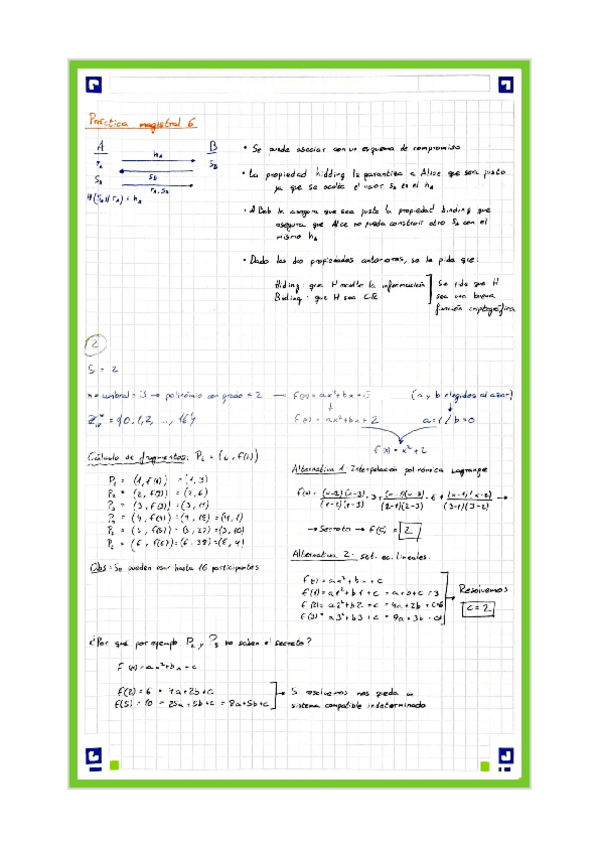 Práctica magistral 6
A B
rA hA sB
sA sB
rA, sA
H(sA || rA) = hA
• Se puede asociar con un esquema de compromiso
• La propiedad hidding le garantiza a Alice que sera justo
ya que se oculta el valor sA en el hA
• A Bob le asegura que sea justo la propiedad binding que
asegura que Alice no pueda construir otro sA con el
mismo hA
• Dado las dos propiedades anteriores, se le pide que:
Hiding: que H oculte la información
Binding: que H sea CR
Se pide que H
sea una buena
función criptográfica
2
S = 2
umbral = 3 → polinómio con grado = 2 → f(x) = ax²+bx+S (a y b elegidos al azar)
= {0,1,2, ..., 16} f(x) = ax²+bx+2 a=1 / b=0
f(x) = x²+2
Cálculo de fragmentos: Pi = (i, f(i))
P1 = (1, f(1)) = (1, 3)
P2 = (2, f(2)) = (2, 6)
P3 = (3, f(3)) = (3, 11)
P4 = (4, f(4)) = (4, 18) = (4, 1)
P5 = (5, f(5)) = (5, 27) = (5, 10)
P6 = (6, f(6)) = (6, 38) = (6, 4)
Obs: Se pueden usar hasta 16 participantes
Alternativa 1: Interpolación polinómica Lagrange
f(x) = (x-2)(x-3)/(1-2)(1-3) · 3 + (x-1)(x-3)/(2-1)(2-3) · 6 + (x-1)(x-2)/(3-1)(3-2) →
→ Secreto → f(0) = 2
Alternativa 2: sist. ec. lineales.
f(x) = ax²+bx+c
f(1) = a1²+b1+c = a+b+c = 3
f(2) = a2²+b2+c = 4a+2b+c=6
f(3) = a3²+b3+c = 9a+3b+c=11
Resolvemos
c = 2
¿Por qué por ejemplo P2 y P5 no saben el secreto?
f(x) = ax²+bx+c
f(2) = 6 = 4a+2b+c
f(5) = 10 = 25a+5b+c = 8a+5b+c
Si resolvemos nos queda un
sistema compatible indeterminado